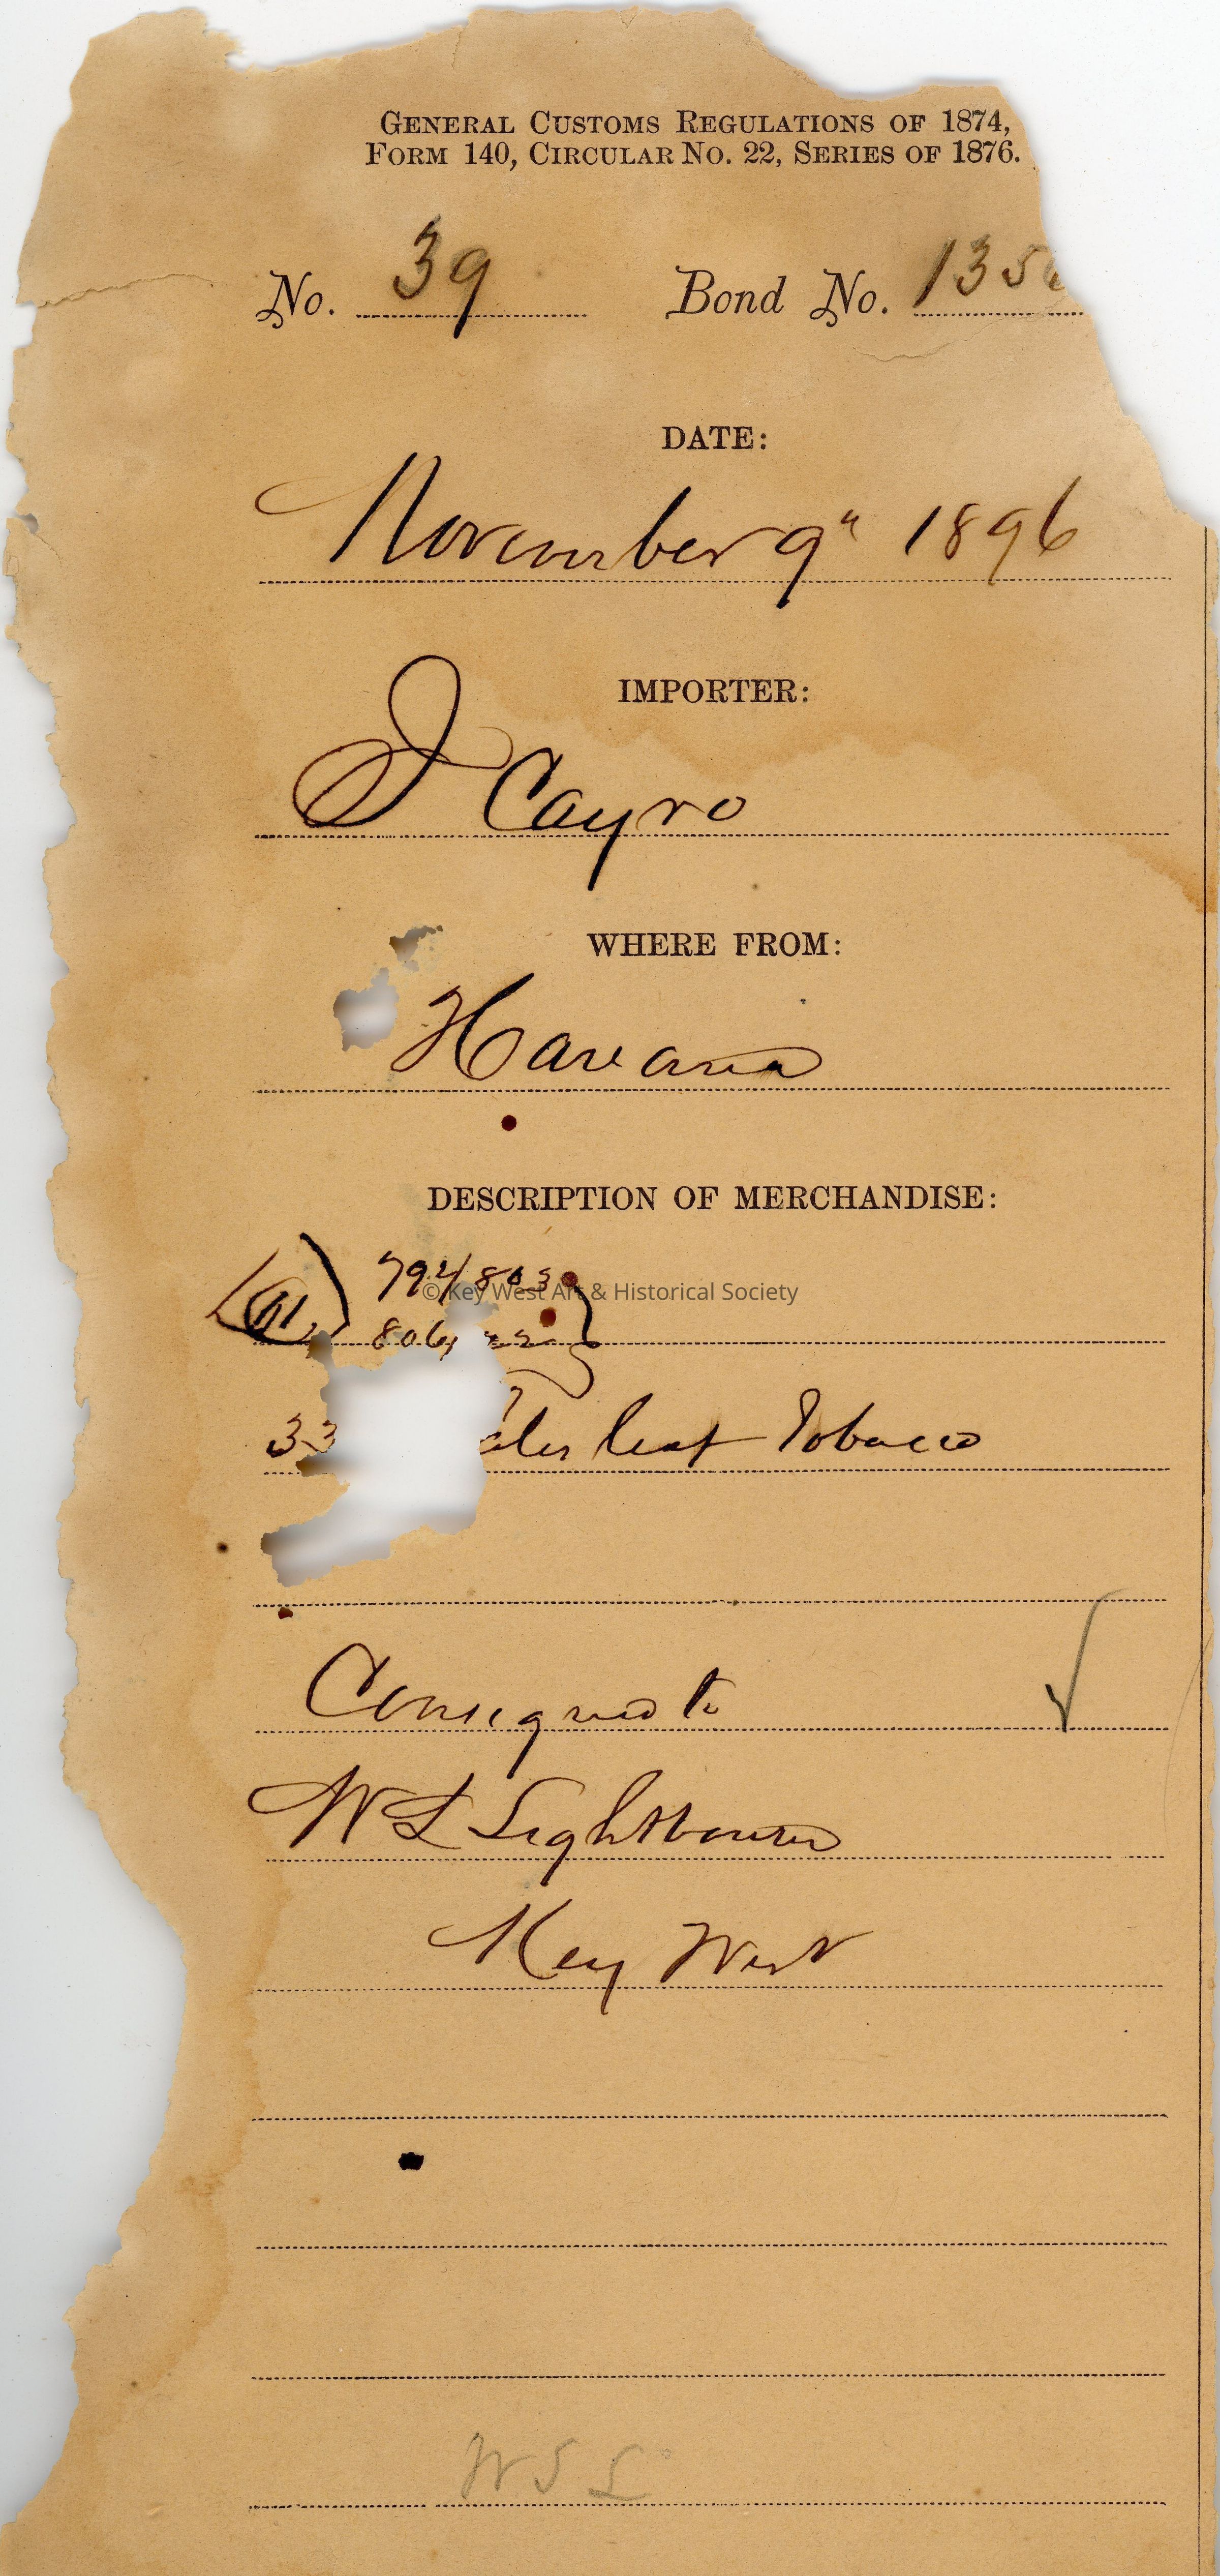 GENERAL CUSTOMS REGULATIONS OF 1874,
FORM 140, CIRCULAR NO. 22, SERIES OF 1876.
No. 39 Bond No.
DATE:
November 9" 1896
IMPORTER:
Cayro
WHERE FROM:
Havana
DESCRIPTION OF MERCHANDISE:
794/803
© Key West Art & Historical Society
806/
33 leaf Tobacco
Consigned to
W L Lightbourn
Key West